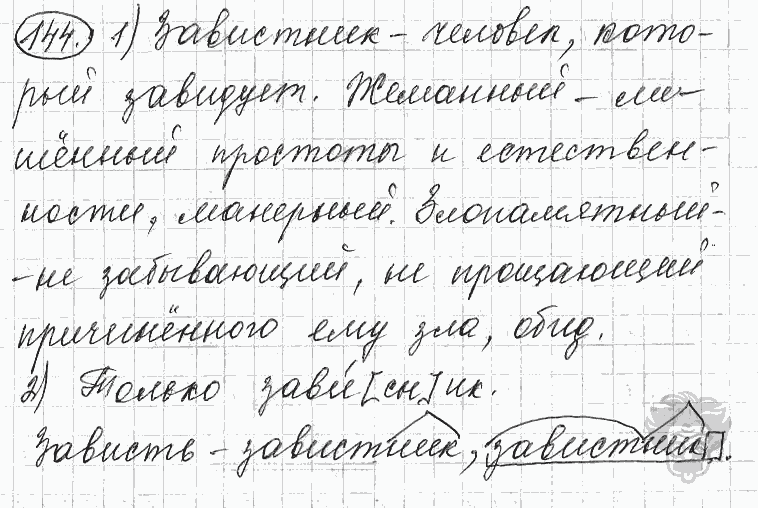 144. 1) Завистник – человек, кото-
рый завидует. Жеманный – ли-
шённый простоты и естествен-
ности, манерный. Злопамятный –
– не забывающий, не прощающий
причинённого ему зла, обид.
2) Только зави́[сн]ик.
Зависть – завистник, завистник.